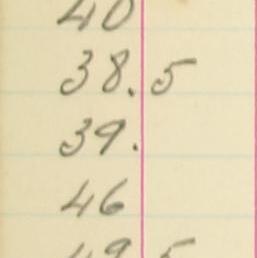 40
38.5
39.
46
49.5